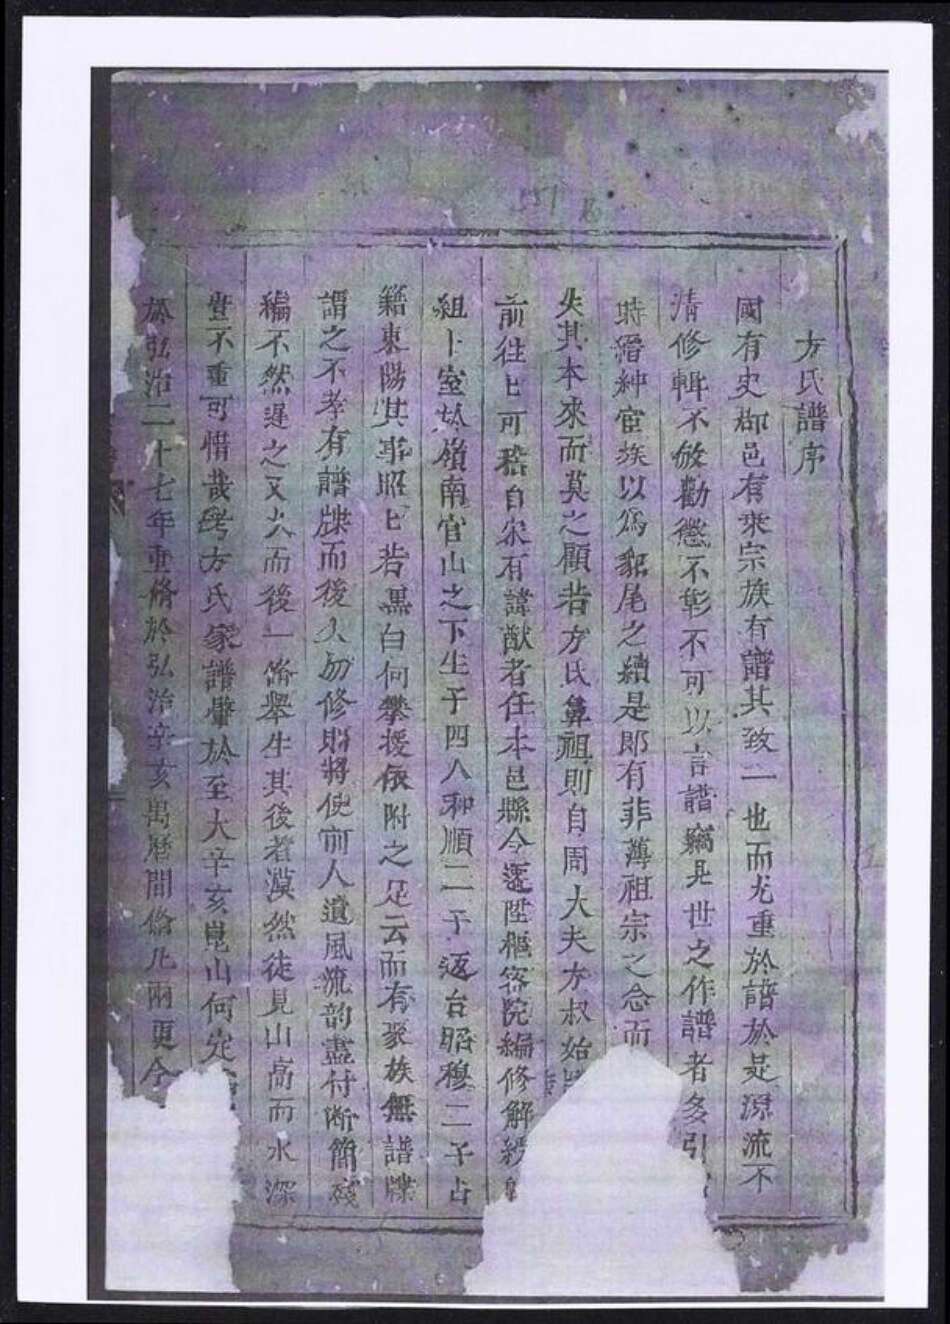 方氏譜序
國有史郡邑有乘宗族有譜其致一也而尤重於譜於是源流不
清修輯不倣勸懲不彰不可以言譜竊見世之作譜者多引
時縉紳宦族以為貂尾之續是即有非薄祖宗之念而
失其本來而莫之顧昔方氏鼻祖則自周大夫方叔始
前往匕可稽自宋有諱猷者任本邑縣令遂陞樞密院編修解
組卜室於嶺南官山之下生子四人和順二子返台昭穆二子占
籍東陽其事昭匕若黑白何攀援依附之足云而有聚族無譜牒
謂之不孝有譜牒而後人勿修則將使前人遺風流韵盡付断簡殘
編不然遲之又久而後一脩舉生其後者漠然徒見山高而水深
豈不重可惜哉考方氏家譜肇於至大辛亥崑山何定
於弘治二十七年重脩於弘治辛亥萬曆間脩凡兩更今